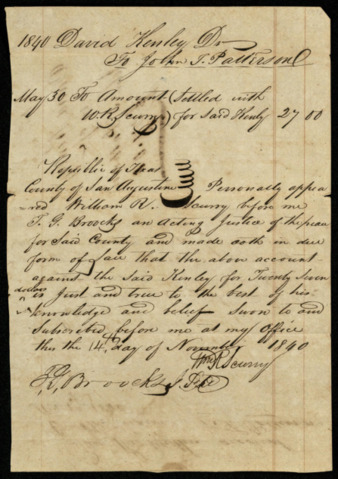 1840 David Henley Dr
To John T. Patterson
May 30 To Amount (Settled with
W. R. Scurry) for Said Henly 27 00
Republic of Texas
County of San Augustine Personally appea
red William R. Scurry before me
T. G. Broocks an Acting Justice of the peace
for Said County and made oath in due
form of Law that the above account
against the Said Henley for Twenty Seven
dollars is Just and true to the best of his
knowledge and belief Sworn to and
Subscribed before me at my Office
this the 14th day of November 1840
Wm R Scurry
T. G. Broocks J. P.